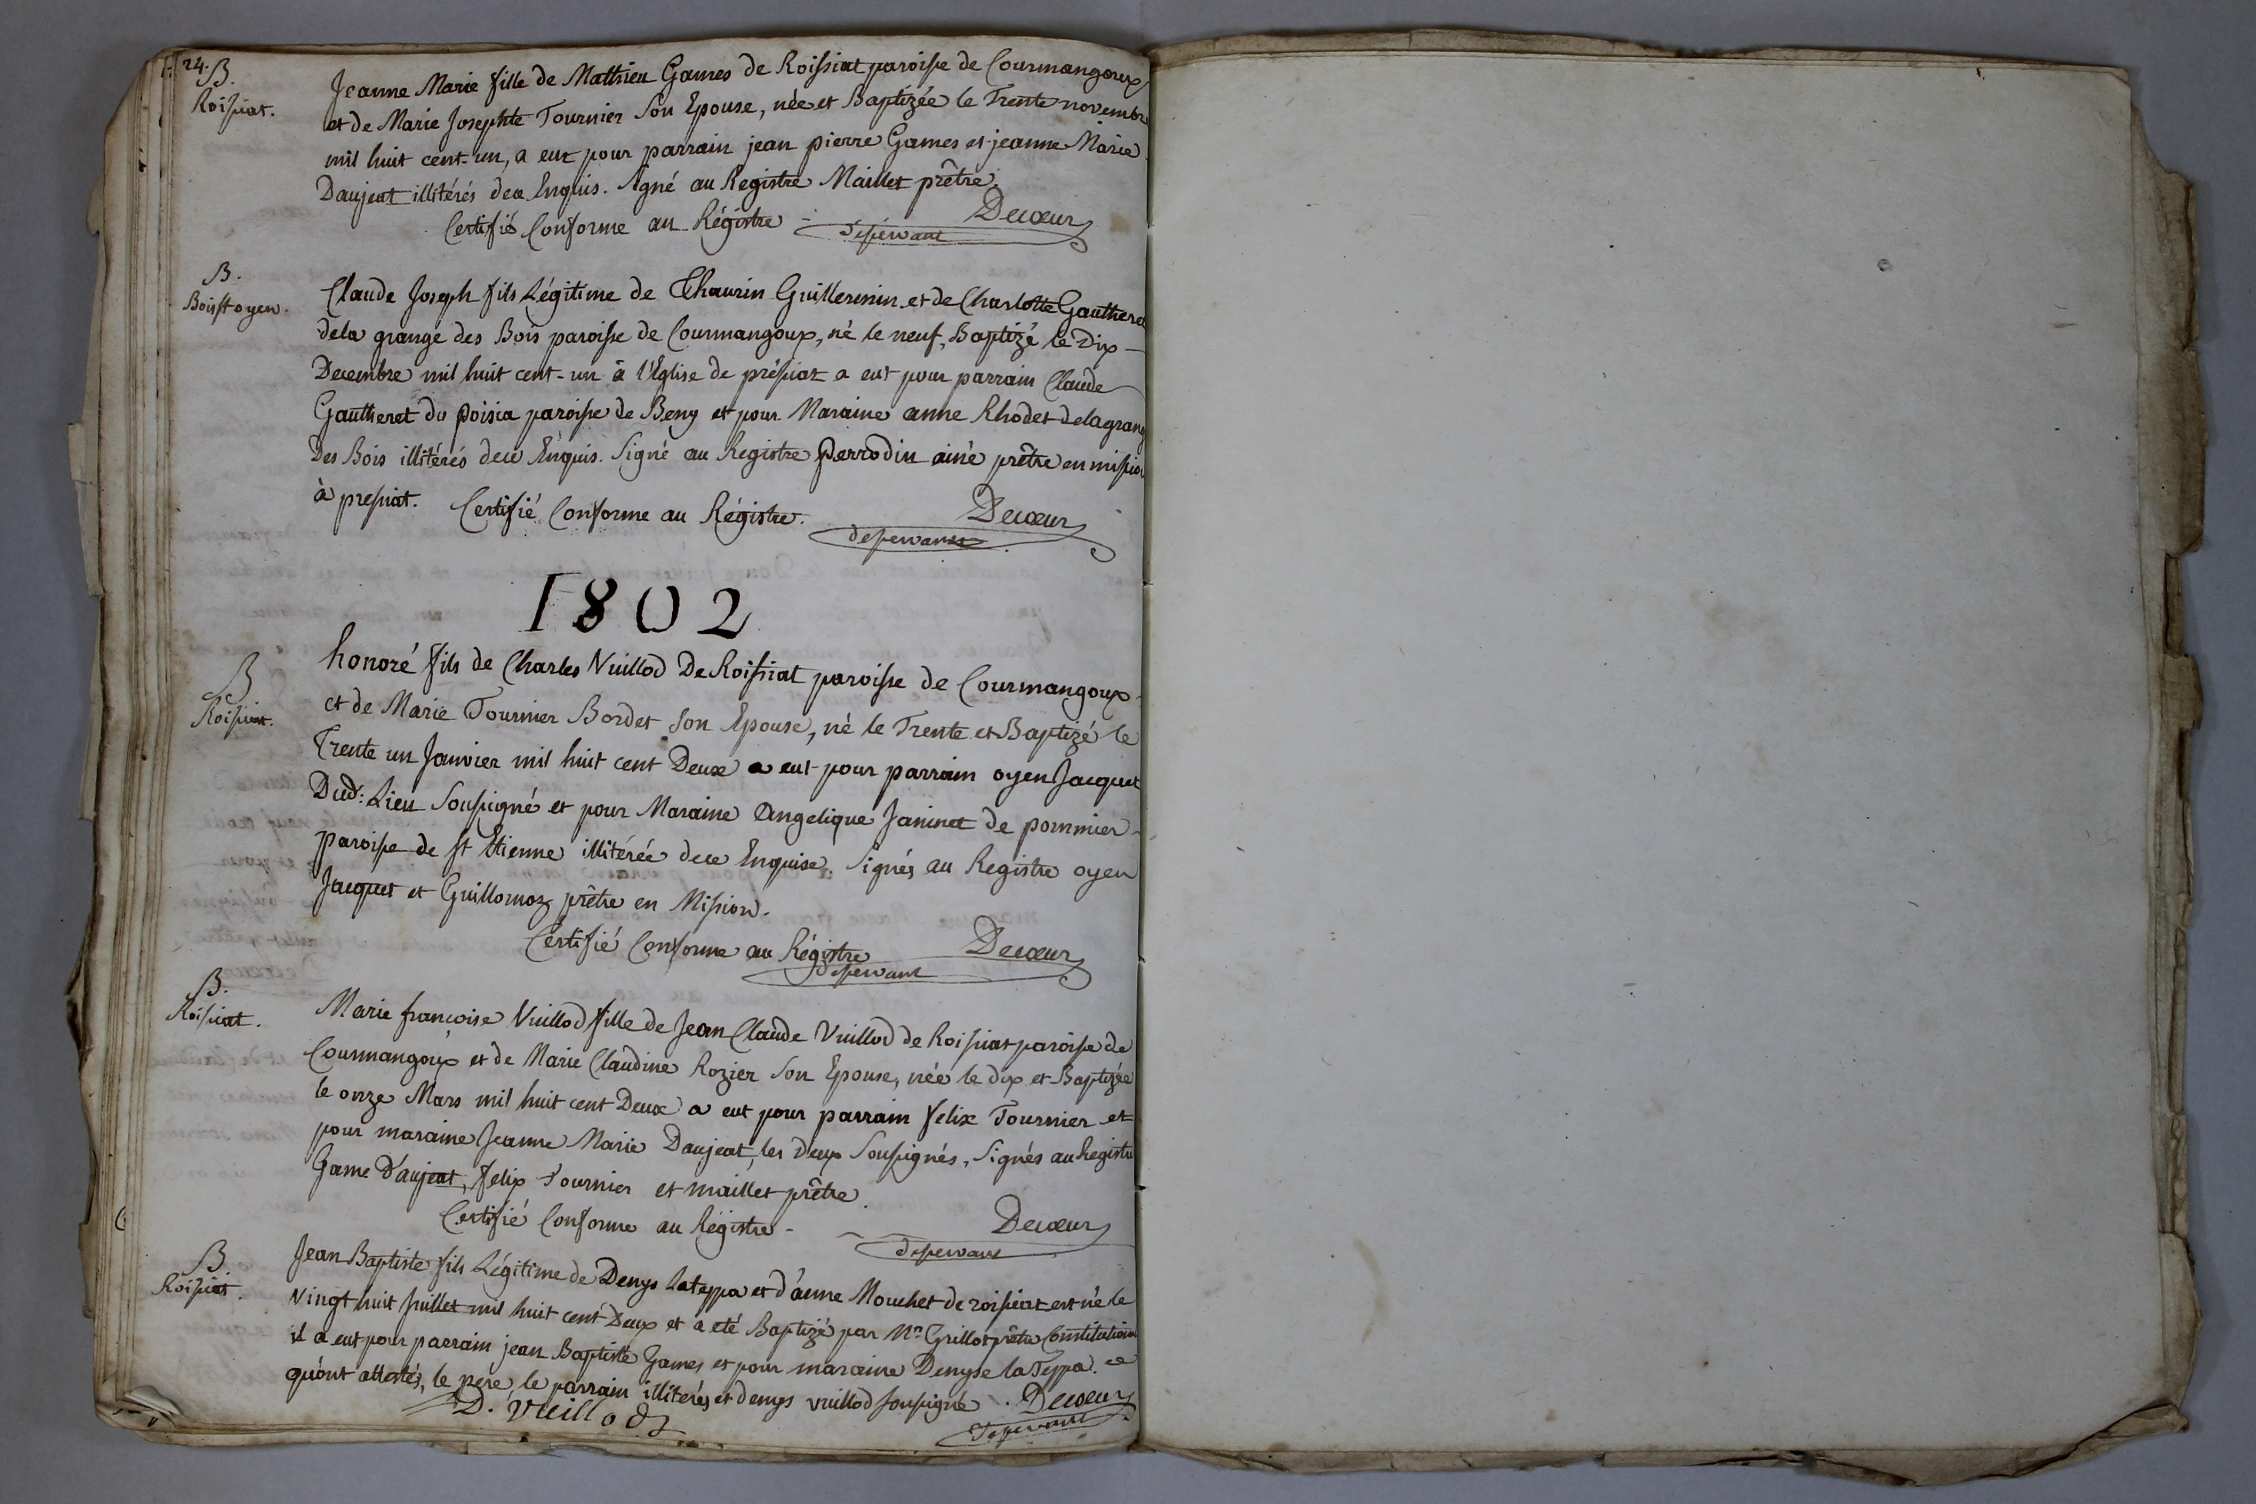 24.
B.
Roissiat.
Jeanne Marie fille de Mathieu Games de Roissiat paroisse de Courmangoux
et de Marie Josephte Tournier Son Epouse, née et Baptizée le Trente novembre
mil huit cent-un, a eut pour parrain jean pierre Games et jeanne Marie
Daujeat illitérés dece Enquis. signé au Registre Maillet prêtre.
Certifié Conforme au Régistre - Decœur
desservant
B.
Boisstoyen.
Claude Joseph fils Légitime de Thaurin Guillermin et de Charlotte Gautheret
dela grange des Bois paroisse de Courmangoux, né le neuf, Baptizé le Dix
Decembre mil huit cent-un à l'Eglise de préssiat a eut pour parrain Claude
Gautheret du poisia paroisse de Beny et pour Maraine anne Rhodet delagrang
Des Bois illitérés dece Enquis. Signé au Registre perrodin ainé prêtre en mission
à pressiat. Certifié Conforme au Régistre. Decœur
desservant
1802
B
Roissiat.
honoré fils de Charles Vuillod De Roissiat paroisse de Courmangoux
et de Marie Tournier Bordet son Epouse, né le Trente et Baptizé le
Trente un Janvier mil huit cent Deux a eut pour parrain oyen Jacquet
Dud: Lieu Soussigné et pour Maraine Angelique Janinet de pommier
paroisse de st Etienne illitérée dece Enquise. Signés au Registre oyen
Jacquet et Guillomoz prêtre en Mission.
Certifié Conforme au Régistre Decœur
desservant
B.
Roissiat.
Marie francoise Vuillod fille de Jean Claude Vuillod de Roissiat paroisse de
Courmangoux et de Marie Claudine Rozier Son Epouse, née le dix et Baptizée
le onze Mars mil huit cent Deux a eut pour parrain felix Tournier et
pour maraine Jeanne Marie Daujeat, les deux Soussignés, Signés au Registre
Game D'aujeat, felix Tournier et maillet prêtre.
Certifié Conforme au Régistre - Decœur
desservant
B.
Roissiat.
Jean Baptiste fils Légitime de Denys Lateppa et d'anne Mouchet de roissiat est né le
Vingt huit Juillet mil huit cent Deux et a eté Baptizé par Mr. Grillot prêtre Constitution
il a eut pour parrain jean Baptiste Games et pour maraine Denyse la Teppa. ce
qu'ont attestés, le père, le parrain illiterés et denys vuillod soussigné. Decœur
D. Vuillod desservant